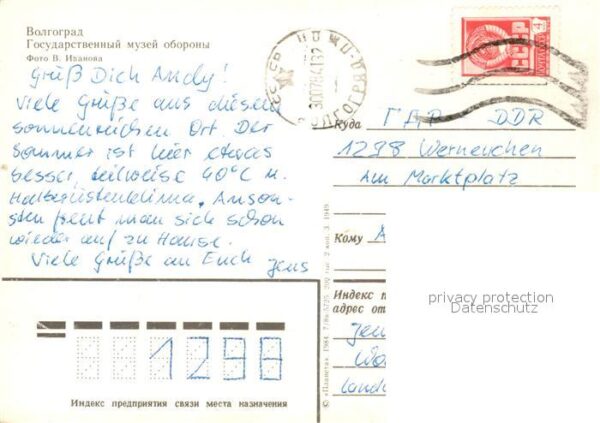 Волгоград
Государственный музей обороны
Фото В. Иванова
Grüß Dich Andy!
Viele Grüße aus diesem
sonnenreichen Ort. Der
Sommer ist hier etwas
besser, teilweise 40°C u.
Halbwüstenklima. Anson-
sten freut man sich schon
wieder auf zu Hause.
Viele Grüße an Euch
Jens
СССР
Куда ГДР DDR
1298 Werneuchen
Am Marktplatz
Кому A
Индекс п
адрес от
Jen
privacy protection
Datenschutz
1298
Индекс предприятия связи места назначения